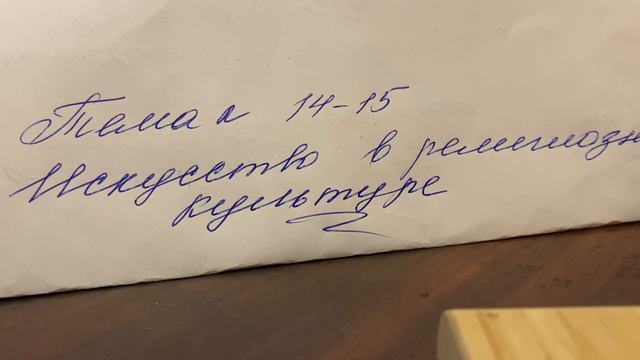 Тема 14-15
Искусство в религиозн
культуре